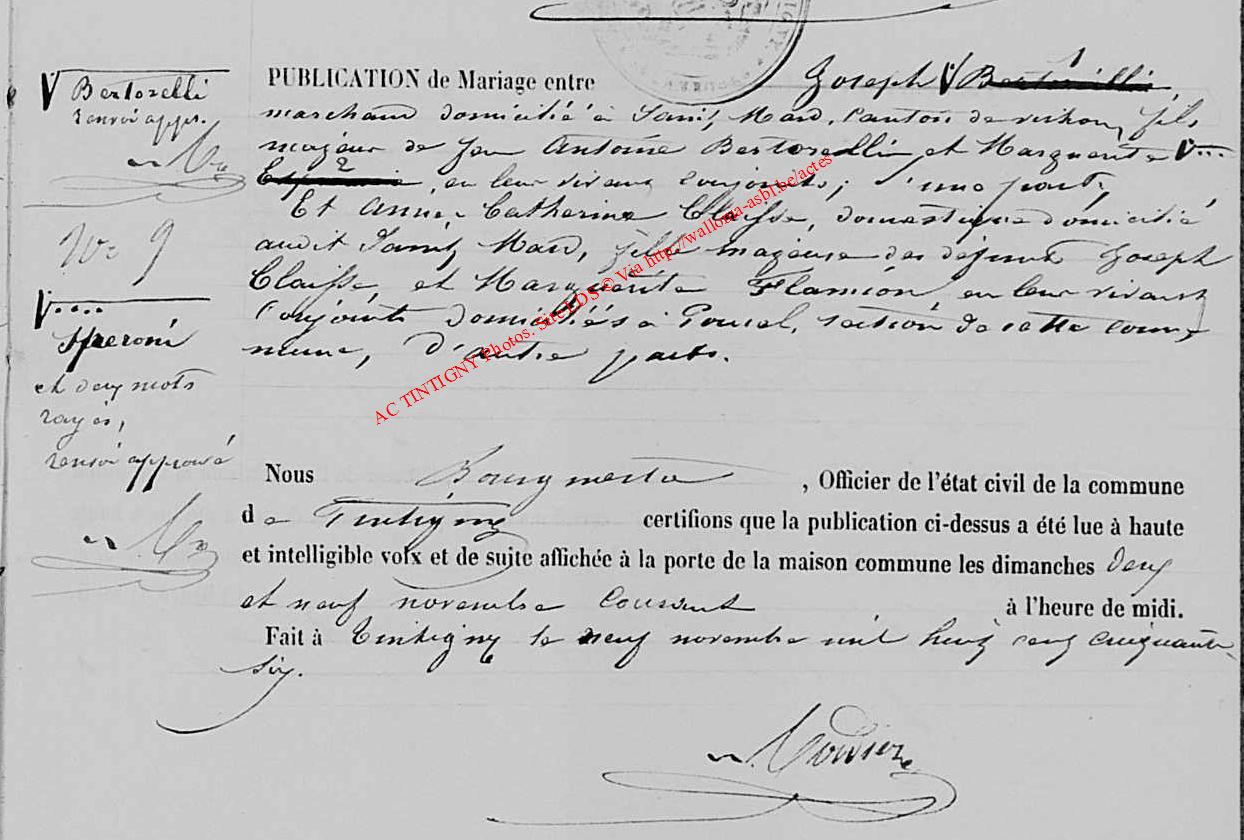 V Bertorelli
renvoi appr.
N° 9
V....
Speroni
et deux mots
rayés,
renvoi approuvé
PUBLICATION de Mariage entre Joseph V Bertorelli,
marchand domicilié à Saint Mard, Canton de virton, fils
majeur de feu Antoine Bertorelli, et Marguerite V...
2
, en leur vivant Conjoints; d'une part,
Et Anne Catherine Claisse, domestique domiciliée
audit Saint Mard, fille majeure des défunts Joseph
Claisse, et Marguerite Flamion, en leur vivant
Conjoints domiciliés à Poncel, section de cette com=
mune, d'autre part.
AC TINTIGNY Photos. Site LDS © Via http://wallonia-asbl.be/actes
Nous Bourgmestre, Officier de l'état civil de la commune
de Tintigny certifions que la publication ci-dessus a été lue à haute
et intelligible voix et de suite affichée à la porte de la maison commune les dimanches deux
et neuf novembre Courant à l'heure de midi.
Fait à Tintigny le neuf novembre mil huit cent cinquante-
six.